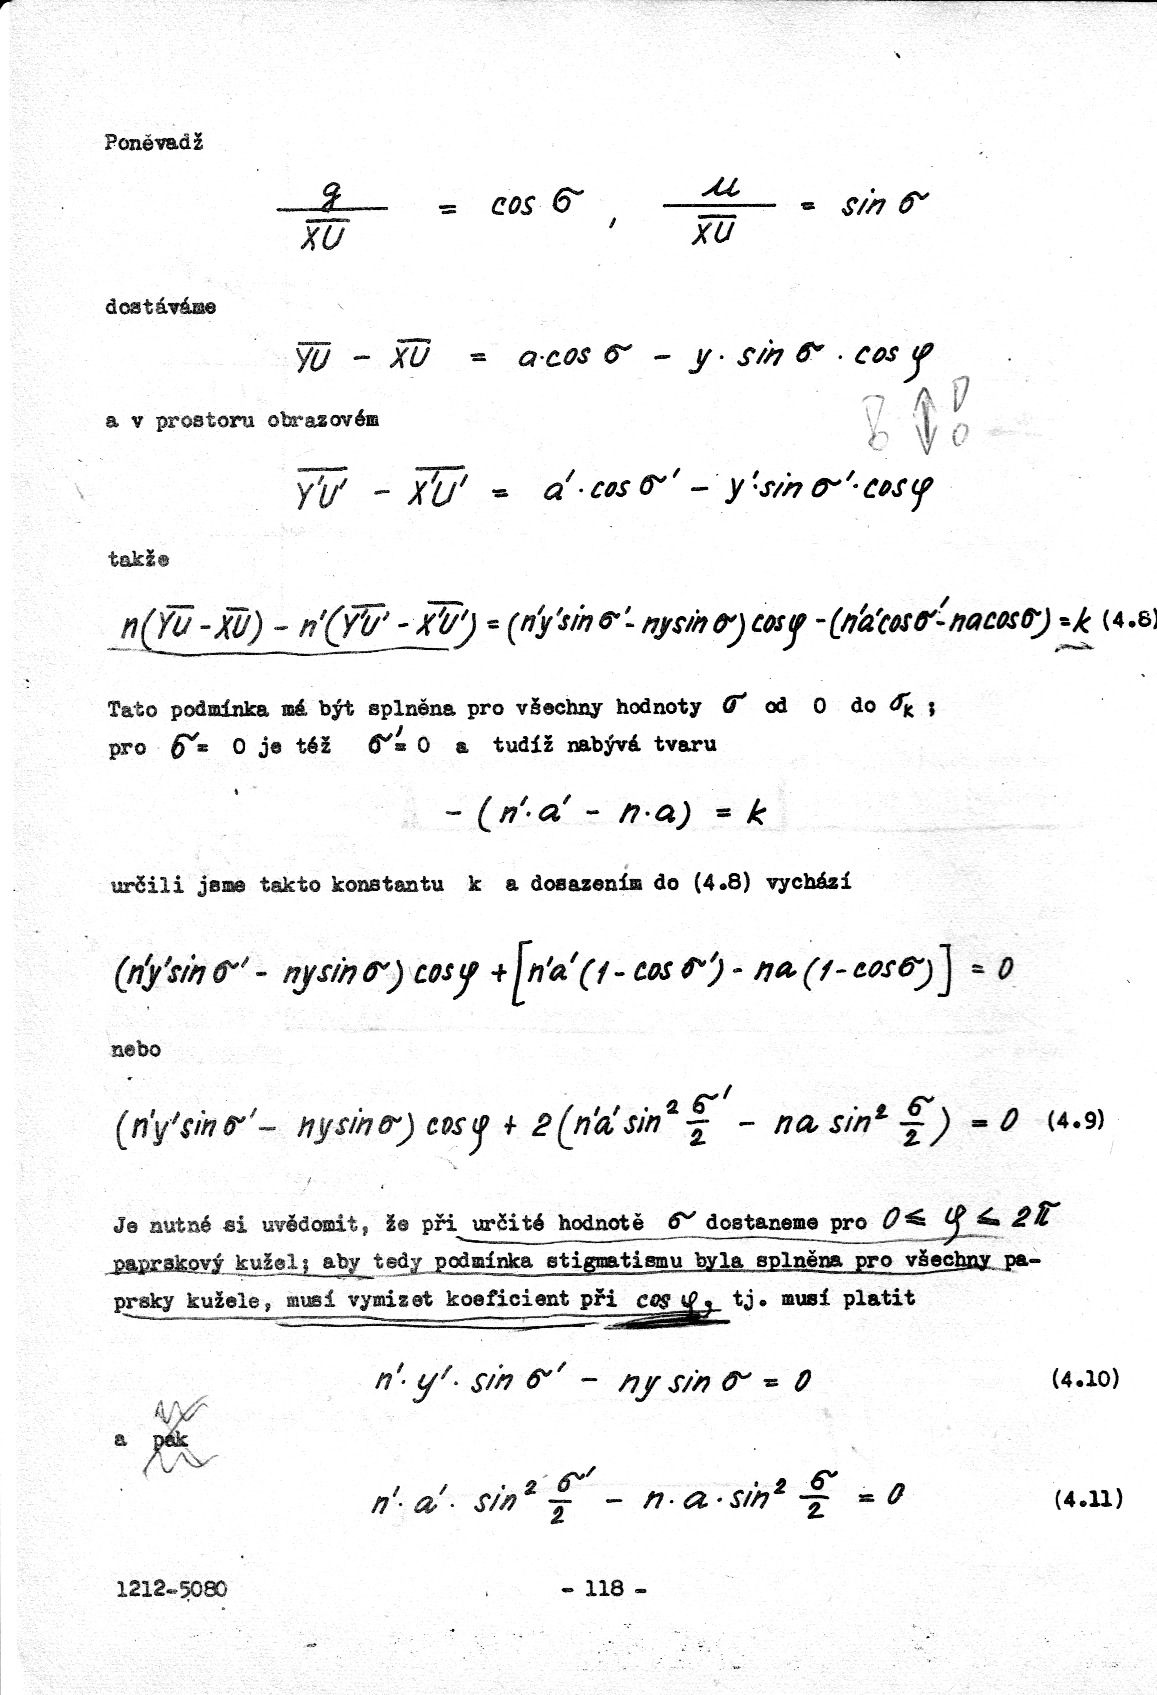 Poněvadž
g/X̅U̅ = cos σ , u/X̅U̅ = sin σ
dostáváme
Y̅U̅ - X̅U̅ = a·cos σ - y· sin σ · cos φ
a v prostoru obrazovém
Y̅'U̅' - X̅'U̅' = a'·cos σ' - y'·sin σ'·cos φ
takže
n(Y̅U̅ - X̅U̅) - n'(Y̅'U̅' - X̅'U̅') = (n'y'sin σ' - nysin σ) cos φ - (n'a'cos σ' - nacos σ) = k (4.8)
Tato podmínka má být splněna pro všechny hodnoty σ od 0 do σK ;
pro σ = 0 je též σ' = 0 a tudíž nabývá tvaru
- (n'·a' - n·a) = k
určili jsme takto konstantu k a dosazením do (4.8) vychází
(n'y'sin σ' - nysin σ) cos φ + [n'a'(1 - cos σ') - na(1 - cos σ)] = 0
nebo
(n'y'sin σ' - nysin σ) cos φ + 2(n'a' sin² σ'/2 - na sin² σ/2) = 0 (4.9)
Je nutné si uvědomit, že při určité hodnotě σ dostaneme pro 0 ≤ φ ≤ 2π
paprskový kužel; aby tedy podmínka stigmatismu byla splněna pro všechny pa-
prsky kužele, musí vymizet koeficient při cos φ, tj. musí platit
n'· y'· sin σ' - ny sin σ = 0 (4.10)
a pak
n'· a'· sin² σ'/2 - n·a·sin² σ/2 = 0 (4.11)
1212-5080 - 118 -